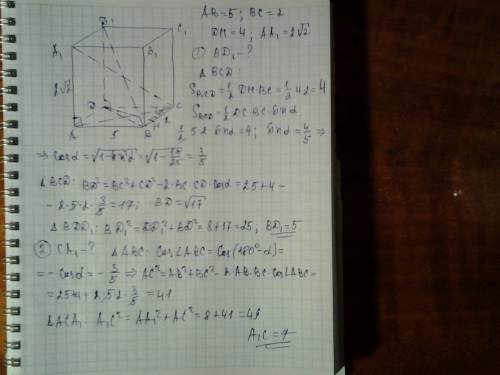 AB=5; BC=2
DH=4; AA₁=2√2
① BD₁-?
△BCD:
S_BCD=½DH·BC=½·4·2=4
S_BCD=½DC·BC·sinα
½·5·2·sinα=4; sinα=4/5 ⇒
⇒ cosα=√(1-sin²α)=√(1-16/25)=3/5
△BCD: BD²=BC²+CD²-2·BC·CD·cosα=25+4-
-2·5·2·3/5=17; BD=√17
△BDD₁: BD₁²=DD₁²+BD²=8+17=25; BD₁=5
② CA₁-? △ABC: cos∠ABC=cos(180°-α)=
=-cosα=-3/5 ⇒ AC²=AB²+BC²-2·AB·BC·cos∠ABC=
=25+4+2·5·2·3/5=41
△ACA₁: A₁C²=AA₁²+AC²=8+41=49
A₁C=7
D₁
C₁
A₁
B₁
2√2
D
C
2
H
A
5
B